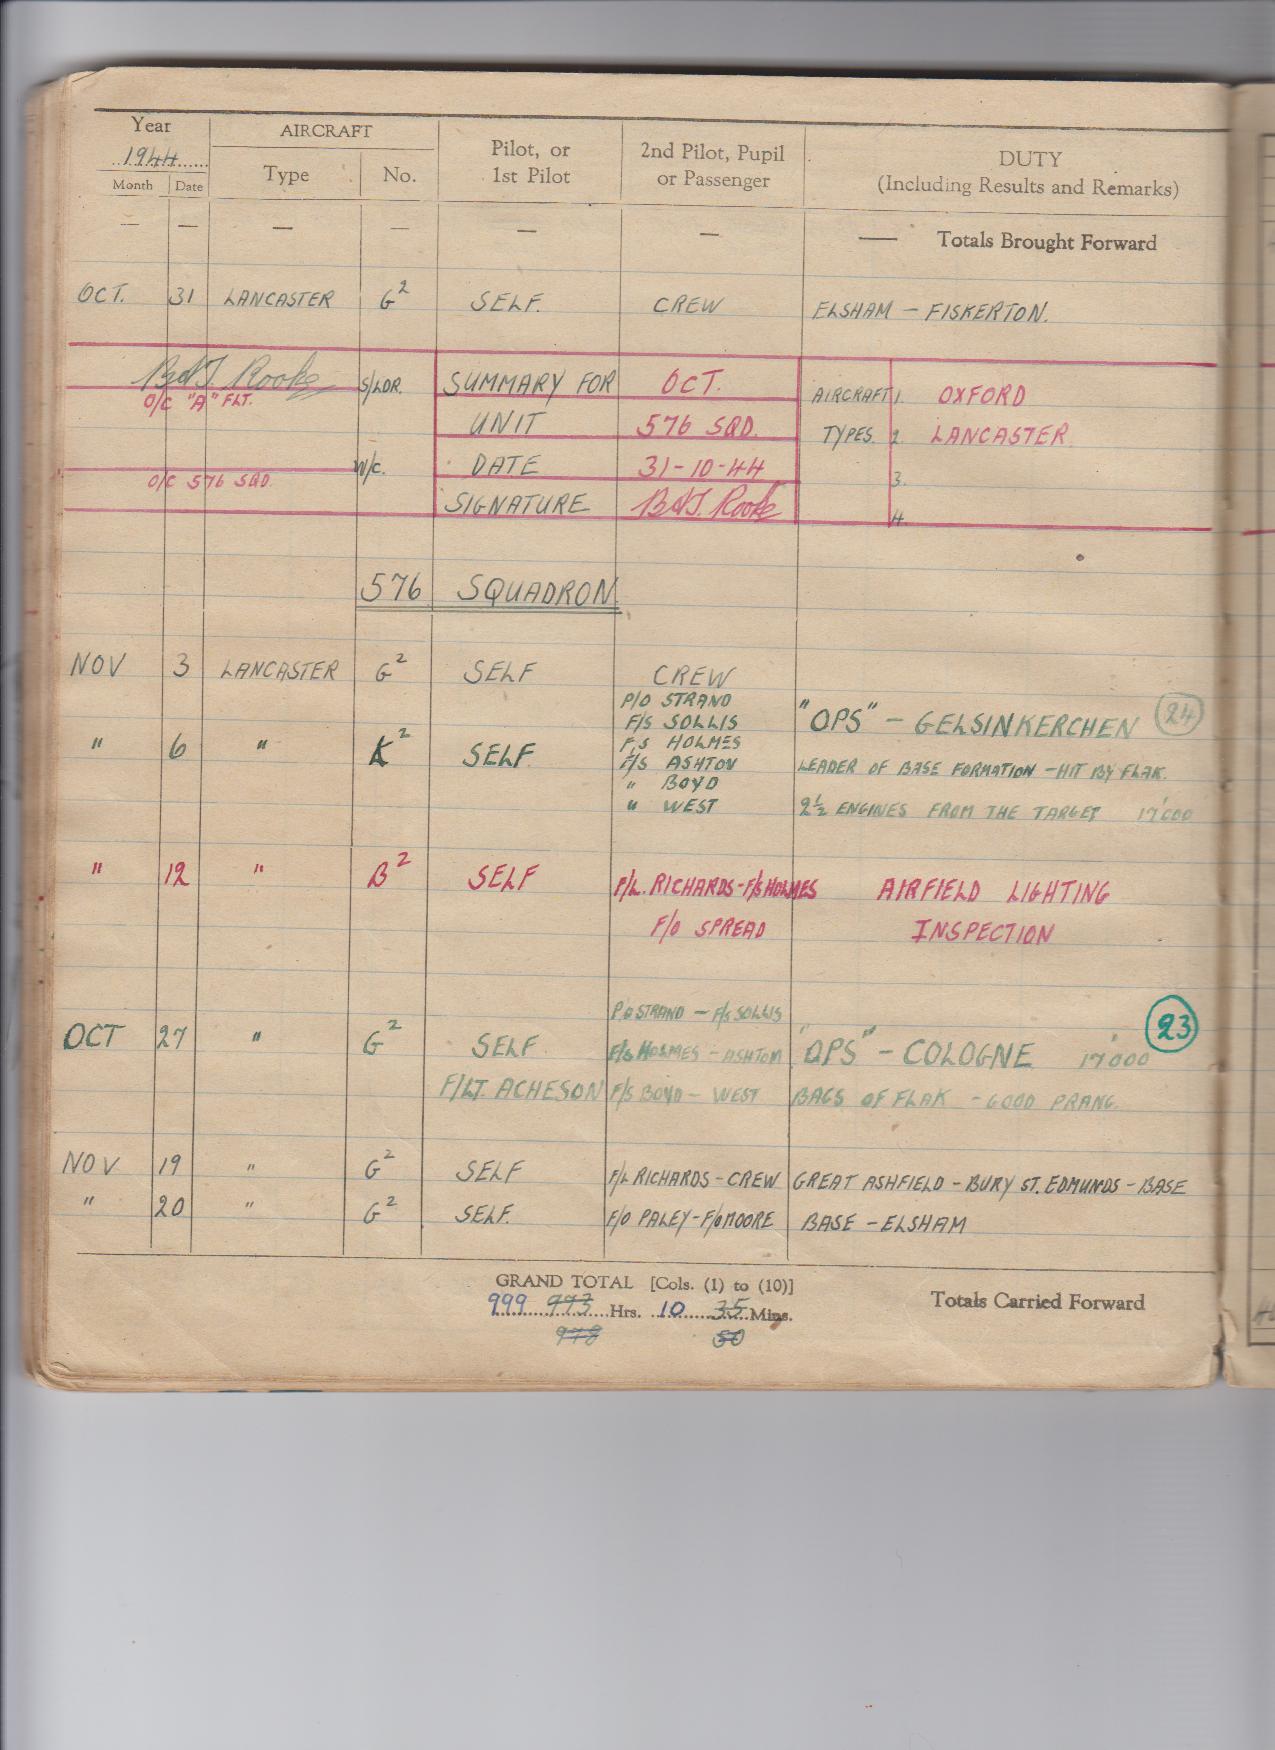 Year AIRCRAFT Pilot, or 1st Pilot 2nd Pilot, Pupil or Passenger DUTY (Including Results and Remarks)
1944
Month Date Type No.
— — — — — — — Totals Brought Forward
OCT. 31 LANCASTER G2 SELF. CREW ELSHAM — FISKERTON.
BdJ. Rooke S/LDR. SUMMARY FOR OCT. AIRCRAFT 1. OXFORD
O/C "A" FLT.
UNIT 576 SQD. TYPES. 2. LANCASTER
W/C. DATE 31-10-44 3.
O/C 576 SQD.
SIGNATURE BdJ. Rooke 4.
576 SQUADRON
NOV 3 LANCASTER G2 SELF CREW
P/O STRAND
F/S SOLLIS "OPS" — GELSINKERCHEN 24
" 6 " K2 SELF. F/S HOLMES
F/S ASHTON LEADER OF BASE FORMATION — HIT BY FLAK.
" BOYD
" WEST 2½ ENGINES FROM THE TARGET 17'000
" 12 " B2 SELF F/L. RICHARDS - F/S HOLMES AIRFIELD LIGHTING
F/O SPREAD INSPECTION
P/O STRAND — F/S SOLLIS
OCT 27 " G2 SELF. F/S HOLMES - ASHTON "OPS" — COLOGNE 17'000 23
F/LT. ACHESON F/S BOYD — WEST BAGS OF FLAK - GOOD PRANG.
NOV 19 " G2 SELF F/L RICHARDS - CREW GREAT ASHFIELD - BURY ST. EDMUNDS - BASE
" 20 " G2 SELF. F/O PALEY - F/O MOORE BASE - ELSHAM
GRAND TOTAL [Cols. (1) to (10)] Totals Carried Forward
999 993 Hrs. 10 35 Mins.
998 50